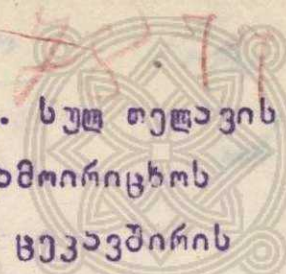 . სულ თელავის
ამოირიცხოს
ცეკავშირის